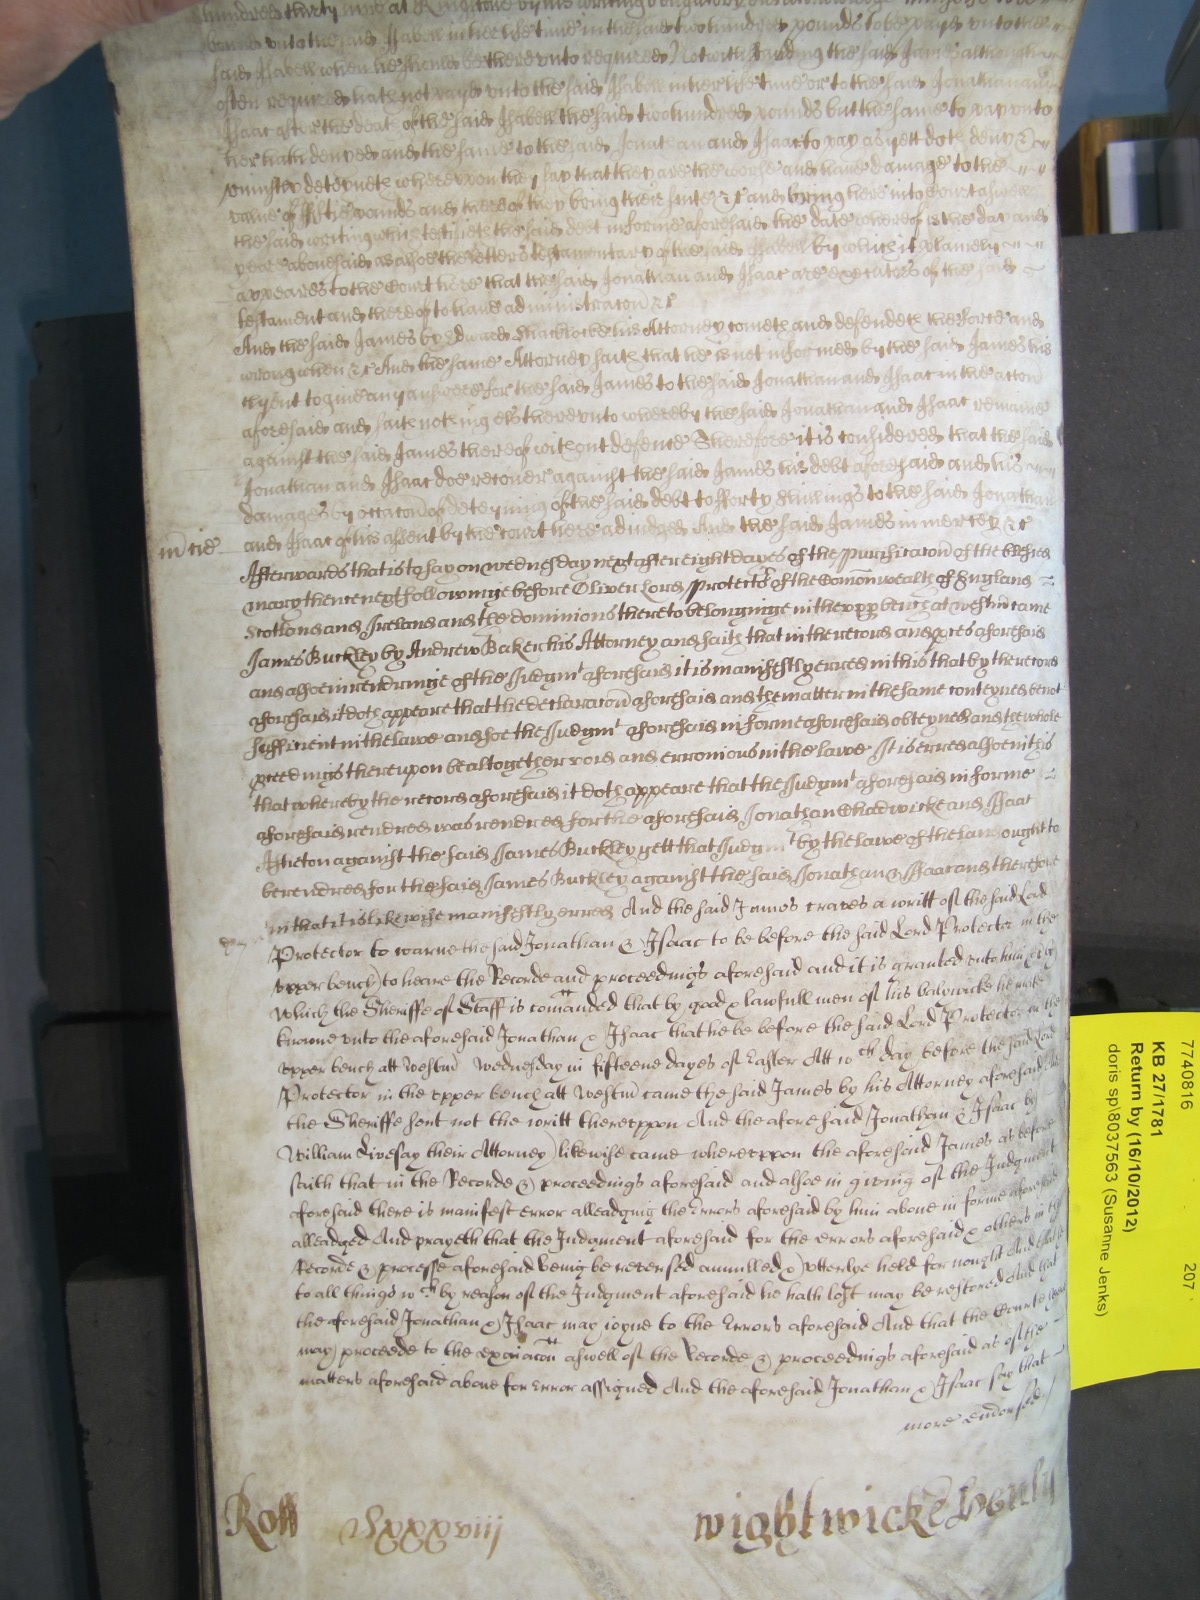 hundred thirty nine at Kingstone by his writing obligatory did acknowledge himselfe to be
bound unto the said Isabell in her life time in the said two hundred pounds to be payd unto the
said Isabell when he should be thereunto required Notwithstanding the said James although
often required hath not payd unto the said Isabell in her life time or to the said Jonathan and
Isaac after the death of the said Isabell the said two hundred pounds but the same to pay unto
her hath denyed and the same to the said Jonathan and Isaac to pay as yett doth deny &
uniustly deteyneth whereupon they say that they are the worse and have damage to the
value of fiftie pounds and thereof they bring their suite &c and bring here into Court aswell
the said writing which testifieth the said debt in forme aforesaid the date whereof is the day and
yeare abovesaid as alsoe the letters testamentary of the said Isabell by which it plainely
appeares to the Court here that the said Jonathan and Isaac are executors of the said
testament and thereof to have administracon &c
And the said James by Edward Shacklocke his Attorney cometh and defendeth the force and
wrong when &c And the same Attorney saith that he is not informed by the said James his
clyent to give any answere for the said James to the said Jonathan and Isaac in the accon
aforesaid and saith nothing els thereunto whereby the said Jonathan and Isaac remaine
against the said James thereof without defence Therefore it is considered that the said
Jonathan and Isaac doe recover against the said James his debt aforesaid and his
damages by occacon of deteyning of the said debt to fforty shillings to the said Jonathan
and Isaac of his assent by the Court here adiudged And the said James in mercy &c
m̄cie
Afterwards that is to say on wednesday next after eight dayes of the purificacon of the blessed
mary thence next followinge before Oliver Lord protector of the Comonwealth of England
Scotland and Ireland and the dominions thereto belonginge in the upp bench at westm came
James Buckley by Andrew Baker his Attorney and saith that in the record and pces aforesaid
and alsoe in rendringe of the Judgmt aforesaid it is manifestly erred in this that by the record
aforesaid it doth appeare that the declaracon aforesaid and the matter in the same conteyned be not
sufficient in the lawe and soe the Judgmt aforesaid in forme aforesaid obteyned and the whole
pceedings thereupon be altogether void and erronious in the lawe It is erred alsoe in this
that whereby the record aforesaid it doth appeare that the Judgmt aforesaid in forme
aforesaid rendred was rendred for the aforesaid Jonathan Chadwicke and Isaac
Assheton against the said James Buckley yett that Judgmt by the lawe of the land ought to
be rendred for the said James Buckley against the said Jonathan & Isaac and therefore
in that it is likewise manifestly erred And the said James craves a writt of the said Lord
Protector to warne the said Jonathan & Isaac to be before the said Lord Protector in the
upper bench to heare the Recorde and proceedings aforesaid and it is granted unto him &c by
which the Sheriffe of Staff is comanded that by good & lawfull men of his balywicke he make
knowne unto the aforesaid Jonathan & Isaac that he be before the said Lord Protector in the
upper bench att Westm Wednesday in fifteene dayes of Easter Att wch day before the said Lord
Protector in the upper bench att Westm came the said James by his Attorney aforesaid And
the Sheriffe sent not the writt thereuppon And the aforesaid Jonathan & Isaac by
William Livesay their Attorney likewise came whereuppon the aforesaid James as before
saith that in the Recorde & proceedings aforesaid and alsoe in giving of the Judgment
aforesaid there is manifest error alleadging the Errors aforesaid by him above in forme aforesaid
alleadged And prayeth that the Judgment aforesaid for the errors aforesaid & others in the
Recorde & processe aforesaid being be reversed annulled & utterlye held for nought And that he
to all things wch by reason of the Judgment aforesaid he hath lost may be restored And that
the aforesaid Jonathan & Isaac may ioyne to the Errors aforesaid And that the Courte here
may proceede to the exaiacon aswell of the Recorde & proceedings aforesaid as of the
matters aforesaid above for Error assigned And the aforesaid Jonathan & Isaac say that
more endorsed
Roll lxxxviij
wightwicke
7740816 207
KB 27/1781
Return by (16/10/2012)
doris sp\8037563 (Susanne Jenks)